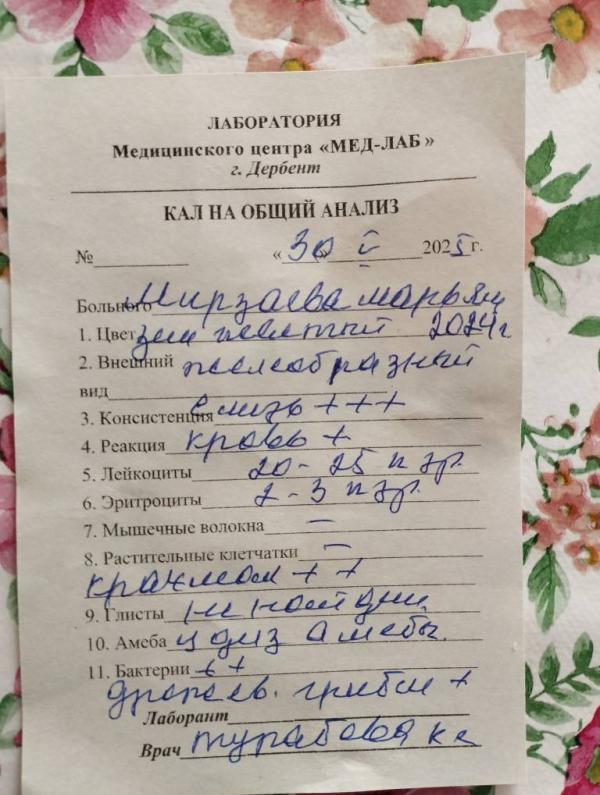 ЛАБОРАТОРИЯ
Медицинского центра «МЕД-ЛАБ»
г. Дербент
КАЛ НА ОБЩИЙ АНАЛИЗ
№ «30» V 2025 г.
Больного Мирзаева Марьям
1. Цвет зел желтый 2024 г
2. Внешний желеобразный
вид
3. Консистенция слизь +++
4. Реакция кровь +
5. Лейкоциты 20-25 п зр.
6. Эритроциты 2-3 п зр.
7. Мышечные волокна –
8. Растительные клетчатки –
крахмал ++
9. Глисты не найдены
10. Амеба цдиз амебы.
11. Бактерии ++
дрожжев. грибки +
Лаборант
Врач